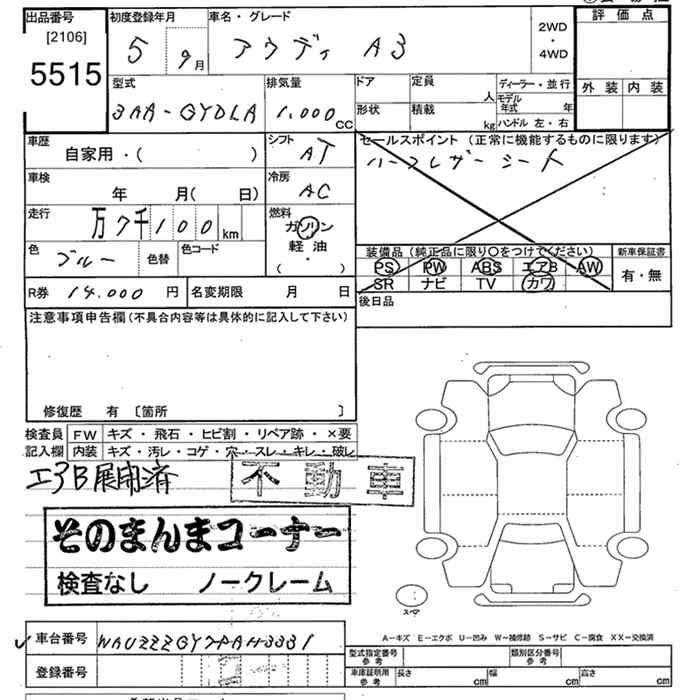 出品番号
[2106]
5515
初度登録年月
5 9月
車名・グレード
アウディ A3
2WD
・
4WD
評価点
外装 内装
型式
3AA-GYDLA
排気量
1.000cc
ドア
定員 人
形状
積載 kg
ディーラー・並行
モデル年式 年
ハンドル 左・右
車歴
自家用・( )
シフト
AT
車検
年 月( 日)
冷房
AC
走行
万7千100km
燃料
ガソリン
軽油
( ・ )
色
ブルー
色替
色コード
R券 14.000 円
名変期限 月 日
セールスポイント (正常に機能するものに限ります)
ハーフレザーシート
装備品 (純正品に限り〇をつけてください)
PS PW ABS エアB AW
SR ナビ TV カワ
新車保証書
有・無
後日品
注意事項申告欄(不具合内容等は具体的に記入して下さい)
修復歴 有 〔箇所 〕
検査員
記入欄
FW キズ・飛石・ヒビ割・リペア跡・×要
内装 キズ・汚レ・コゲ・穴・スレ・キレ・破レ
エアB展開済
不動車
そのまんまコーナー
検査なし ノークレーム
スペア
車台番号
登録番号
A-キズ E-エクボ U-凹み W-補修跡 S-サビ C-腐食 XX-交換済
型式指定番号
参考
類別区分番号
参考
車庫証明用
参考
長さ cm 幅 cm 高さ cm